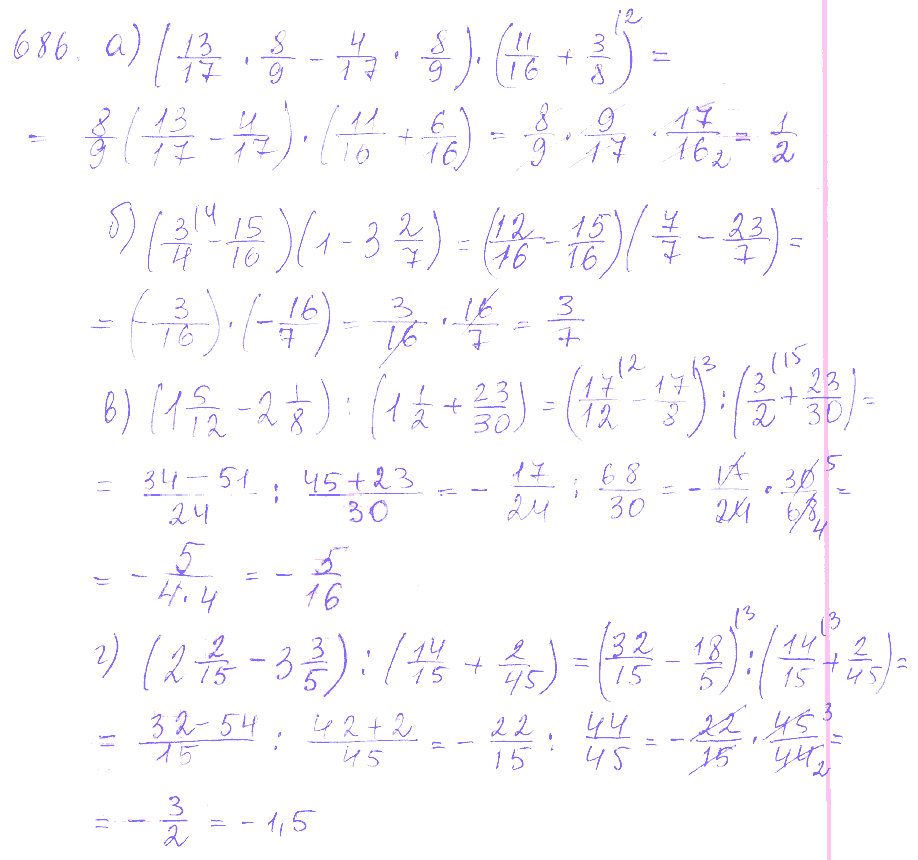 686. а) (13/17 · 8/9 - 4/17 · 8/9) · (11/16 + 3/8)^(2 =
= 8/9 (13/17 - 4/17) · (11/16 + 6/16) = 8/9 · 9/17 · 17/16 2 = 1/2
б) (3/4^(4 - 15/16)(1 - 3 2/7) = (12/16 - 15/16)(7/7 - 23/7) =
= (-3/16) · (-16/7) = 3/16 · 16/7 = 3/7
в) (1 5/12 - 2 1/8) : (1 1/2 + 23/30) = (17/12^(2 - 17/8)^(3 : (3/2^(15 + 23/30) =
= 34-51/24 : 45+23/30 = - 17/24 : 68/30 = - 17/24 4 · 30 5/68 4 =
= - 5/4·4 = - 5/16
г) (2 2/15 - 3 3/5) : (14/15 + 2/45) = (32/15 - 18/5)^(3 : (14/15^(3 + 2/45) =
= 32-54/15 : 42+2/45 = - 22/15 : 44/45 = - 22/15 · 45 3/44 2 =
= - 3/2 = - 1,5